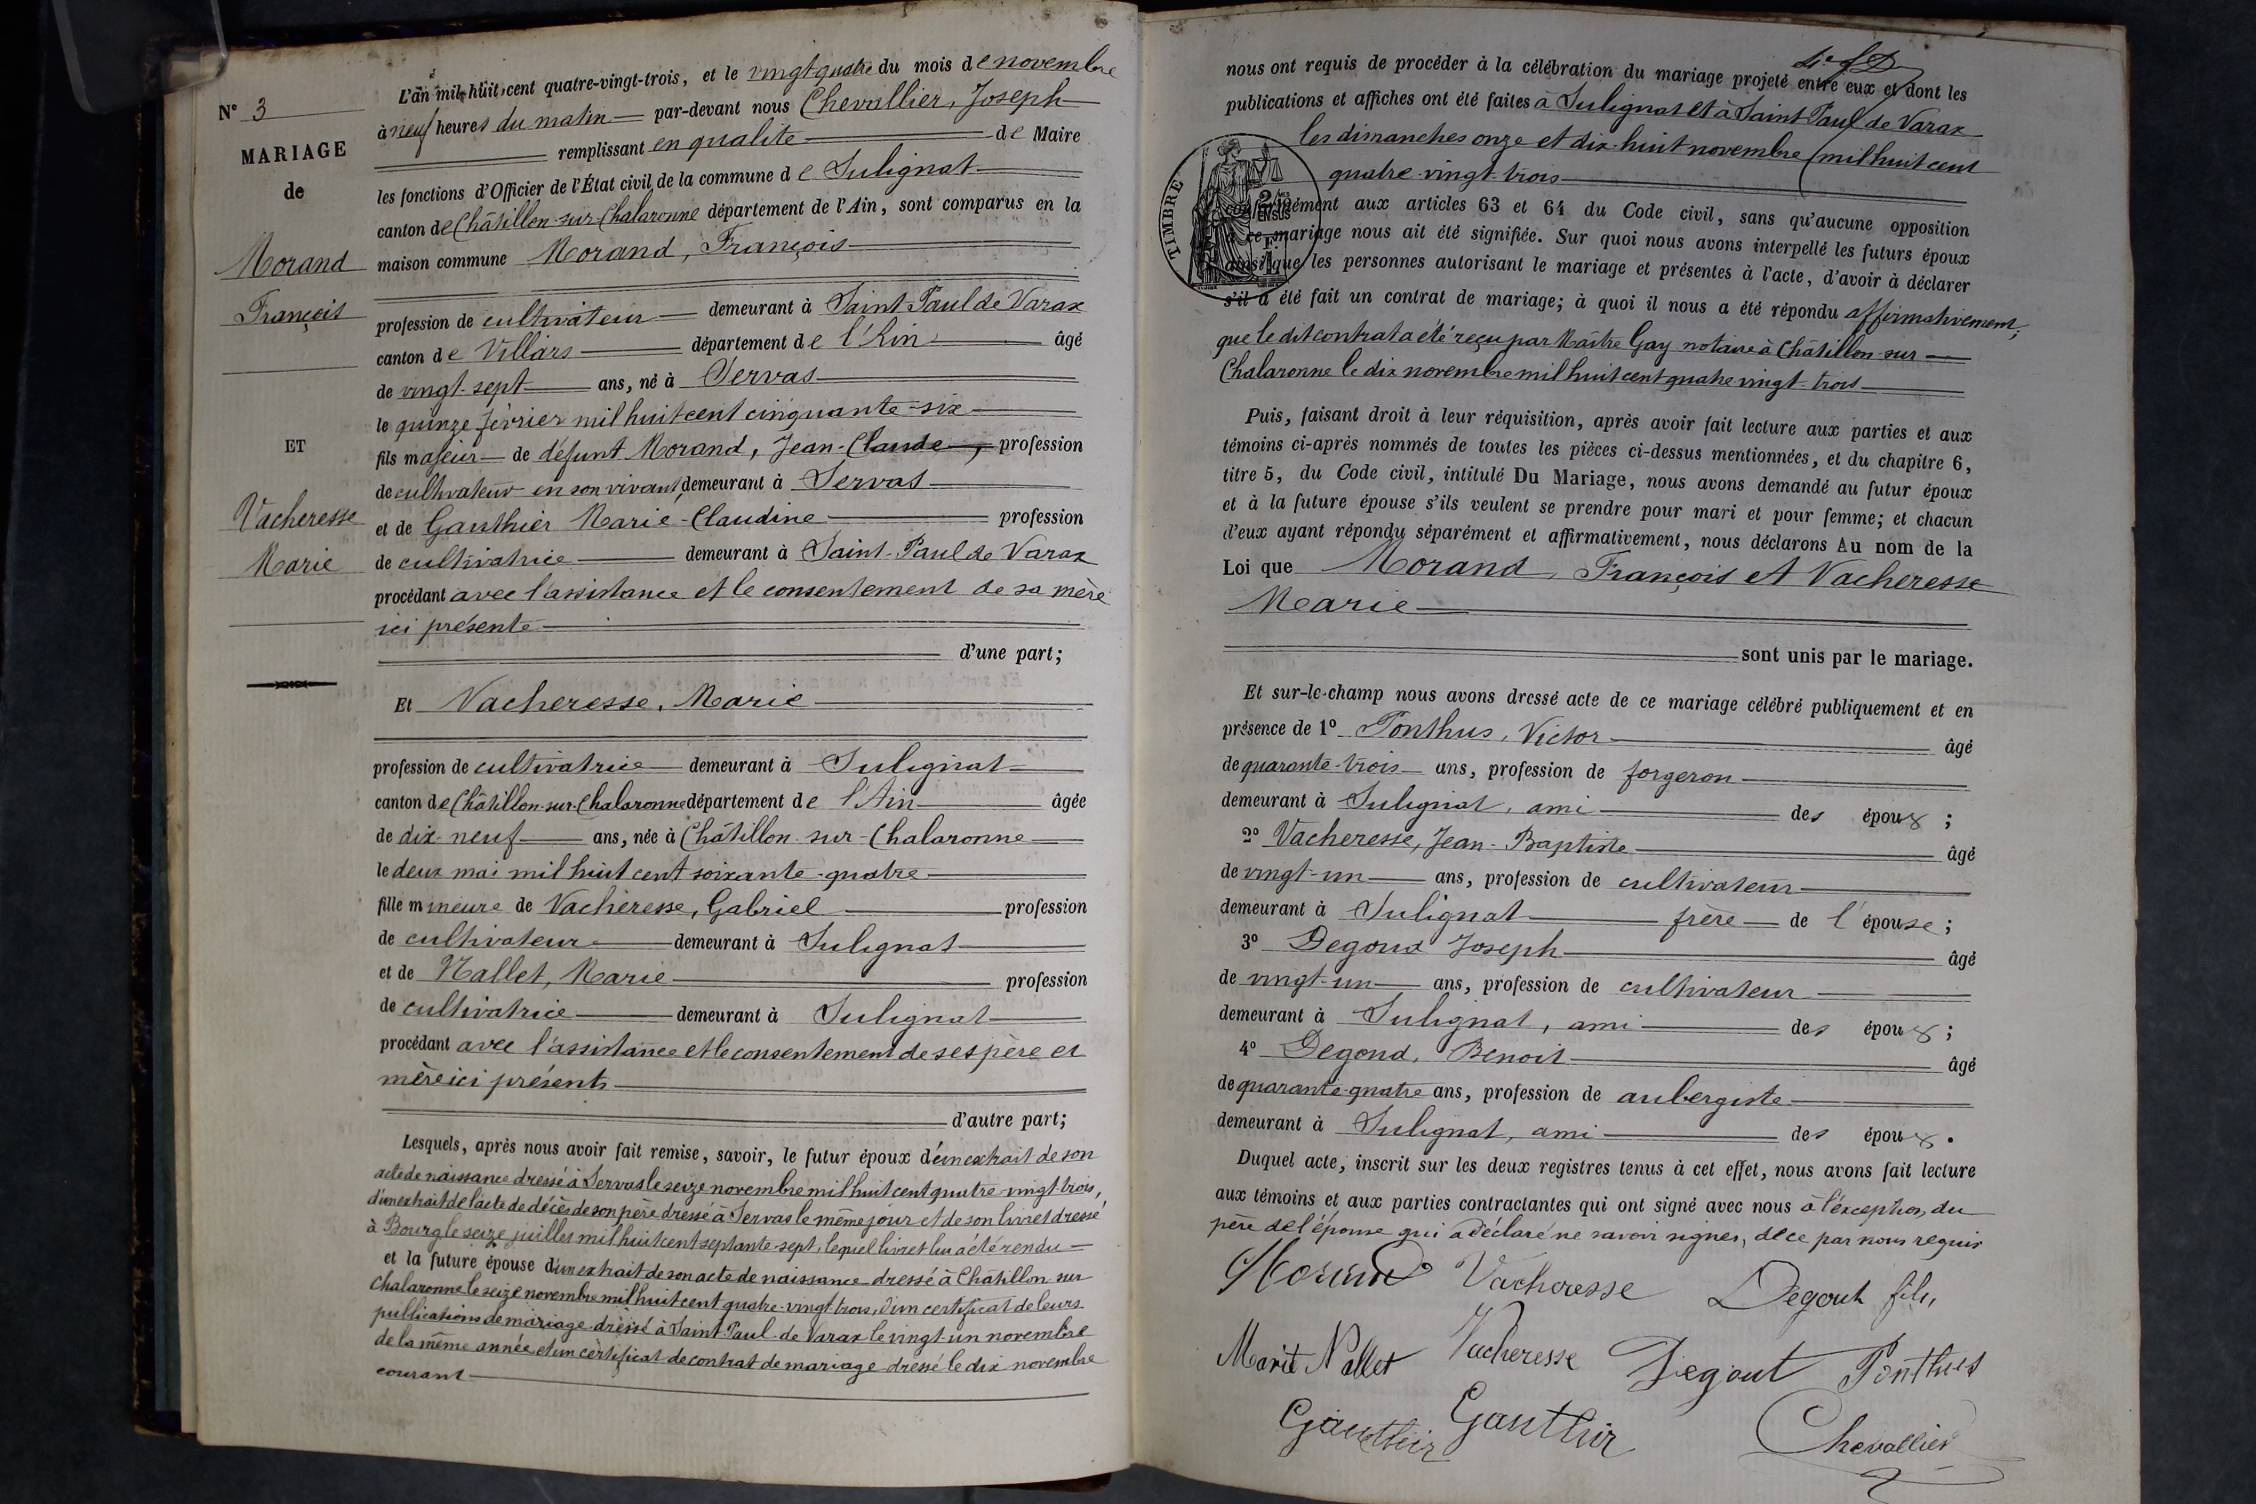 N° 3
MARIAGE
de
Morand
François
ET
Vacheresse
Marie
L'an mil-huit-cent quatre-vingt-trois, et le vingt quatre du mois de novembre
à neuf heures du matin par-devant nous Chevallier, Joseph
remplissant en qualité de Maire
les fonctions d'Officier de l'État civil de la commune de Sulignat
canton de Châtillon-sur-Chalaronne département de l'Ain, sont comparus en la
maison commune Morand, François
profession de cultivateur demeurant à Saint-Paul de Varax
canton de Villars département de l'Ain âgé
de vingt-sept ans, né à Servas
le quinze février mil huit cent cinquante-six
fils majeur de défunt Morand, Jean-Claude, profession
de cultivateur en son vivant, demeurant à Servas
et de Gauthier Marie-Claudine profession
de cultivatrice demeurant à Saint-Paul de Varax
procédant avec l'assistance et le consentement de sa mère
ici présente
d'une part;
Et Vacheresse, Marie
profession de cultivatrice demeurant à Sulignat
canton de Châtillon-sur-Chalaronne département de l'Ain âgée
de dix-neuf ans, née à Châtillon-sur-Chalaronne
le deux mai mil huit cent soixante-quatre
fille mineure de Vacheresse, Gabriel profession
de cultivateur demeurant à Sulignat
et de Nallet, Marie profession
de cultivatrice demeurant à Sulignat
procédant avec l'assistance et le consentement de ses père et
mère ici présents
d'autre part;
Lesquels, après nous avoir fait remise, savoir, le futur époux d'un extrait de son
acte de naissance dressé à Servas le seize novembre mil huit cent quatre-vingt trois,
d'un extrait de l'acte de décès de son père dressé à Servas le même jour et de son livret dressé
à Bourg le seize juillet mil huit cent septante-sept, lequel livret lui a été rendu
et la future épouse d'un extrait de son acte de naissance dressé à Châtillon sur
Chalaronne le seize novembre mil huit cent quatre-vingt trois, d'un certificat de leurs
publications de mariage dressé à Saint-Paul-de Varax le vingt-un novembre
de la même année et un certificat de contrat de mariage dressé le dix novembre
courant
nous ont requis de procéder à la célébration du mariage projeté entre eux et dont les
publications et affiches ont été faites à Sulignat et à Saint Paul de Varax
les dimanches onze et dix-huit novembre mil huit cent
quatre-vingt-trois
TIMBRE
conformément aux articles 63 et 64 du Code civil, sans qu'aucune opposition
ce mariage nous ait été signifiée. Sur quoi nous avons interpellé les futurs époux
ainsi que les personnes autorisant le mariage et présentes à l'acte, d'avoir à déclarer
s'il a été fait un contrat de mariage; à quoi il nous a été répondu affirmativement,
que le dit contrat a été reçu par Maître Gay notaire à Châtillon-sur
Chalaronne le dix novembre mil huit cent quatre vingt-trois
Puis, faisant droit à leur réquisition, après avoir fait lecture aux parties et aux
témoins ci-après nommés de toutes les pièces ci-dessus mentionnées, et du chapitre 6,
titre 5, du Code civil, intitulé Du Mariage, nous avons demandé au futur époux
et à la future épouse s'ils veulent se prendre pour mari et pour femme; et chacun
d'eux ayant répondu séparément et affirmativement, nous déclarons Au nom de la
Loi que Morand, François et Vacheresse
Marie
sont unis par le mariage.
Et sur-le-champ nous avons dressé acte de ce mariage célébré publiquement et en
présence de 1° Ponthus, Victor âgé
de quarante-trois ans, profession de forgeron
demeurant à Sulignat, ami des époux;
2° Vacheresse, Jean-Baptiste âgé
de vingt-un ans, profession de cultivateur
demeurant à Sulignat frère de l'épouse;
3° Degoux Joseph âgé
de vingt-un ans, profession de cultivateur
demeurant à Sulignat, ami des époux;
4° Degond, Benoit âgé
de quarante-quatre ans, profession de aubergiste
demeurant à Sulignat, ami des époux.
Duquel acte, inscrit sur les deux registres tenus à cet effet, nous avons fait lecture
aux témoins et aux parties contractantes qui ont signé avec nous à l'exception du
père de l'épouse qui a déclaré ne savoir signer, de ce par nous requis
Morand Vacheresse Degout fils,
Marie Nallet Vacheresse Degout Ponthus
Gauthier Gauthier Chevallier